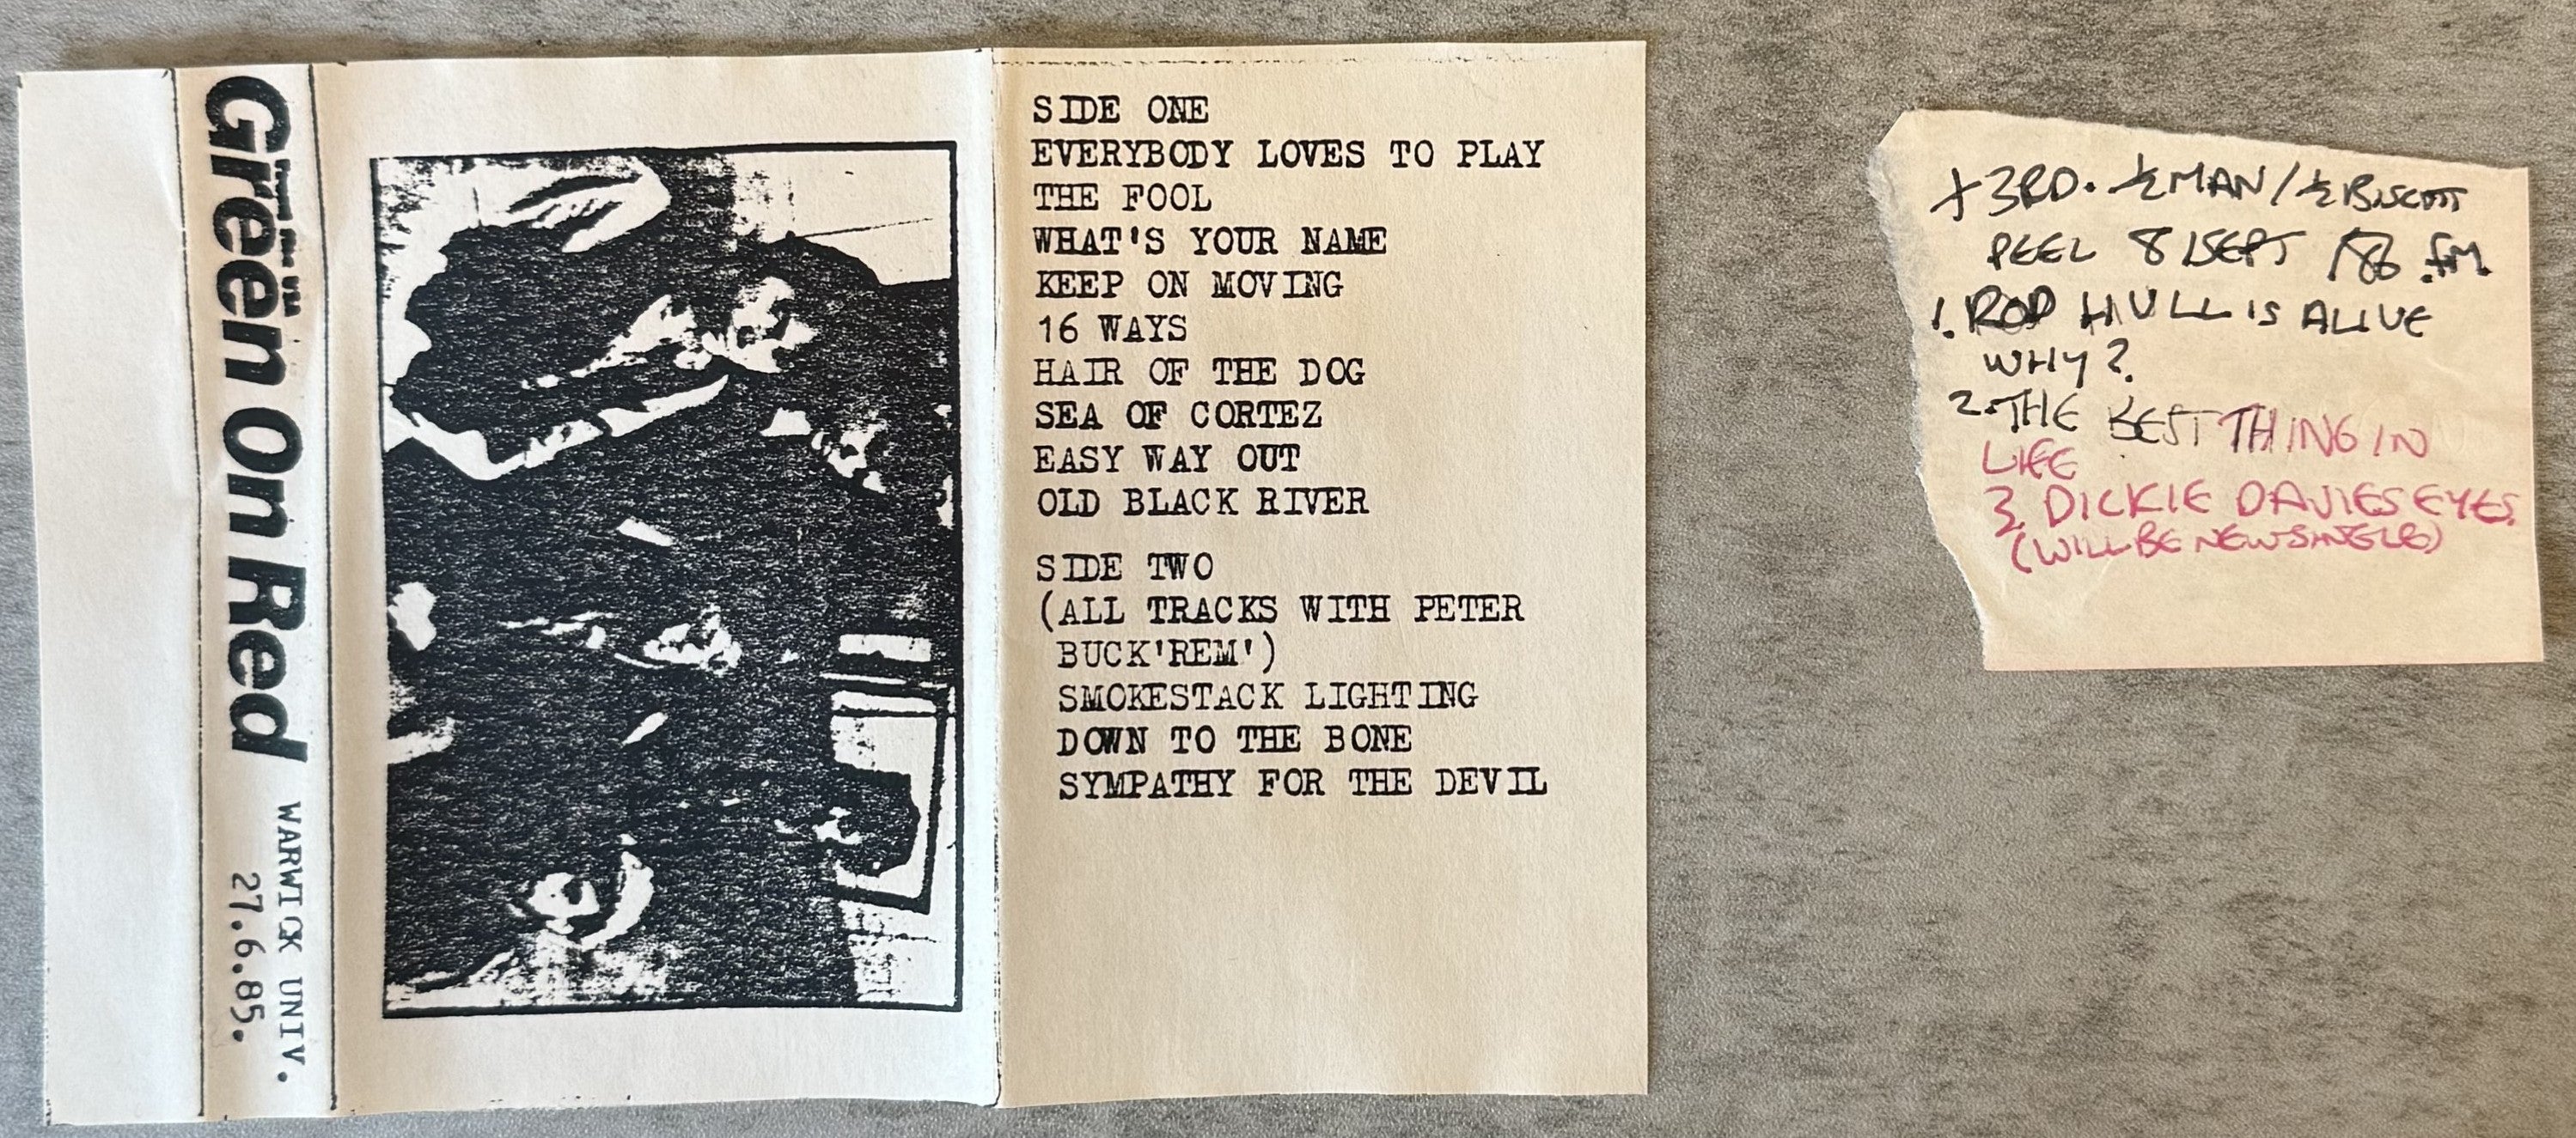 Green On Red
WARWICK UNIV.
27.6.85.
SIDE ONE
EVERYBODY LOVES TO PLAY
THE FOOL
WHAT'S YOUR NAME
KEEP ON MOVING
16 WAYS
HAIR OF THE DOG
SEA OF CORTEZ
EASY WAY OUT
OLD BLACK RIVER
SIDE TWO
(ALL TRACKS WITH PETER
BUCK'REM')
SMOKESTACK LIGHTING
DOWN TO THE BONE
SYMPATHY FOR THE DEVIL
+ 3RD. ½ MAN / ½ BISCUIT
PEEL 8 SEPT '86 .FM.
1. ROD HULL IS ALIVE
WHY?
2. THE BEST THING IN
LIFE
3 DICKIE DAVIES EYES.
(WILL BE NEW SINGLE)